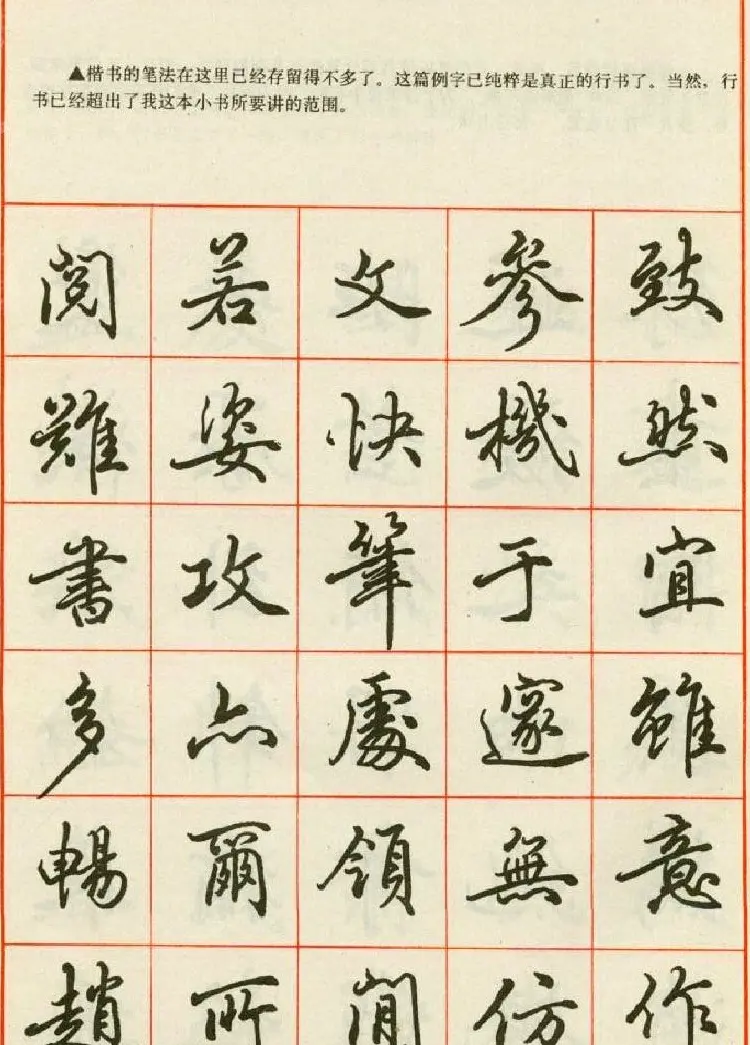 ▲楷书的笔法在这里已经存留得不多了。这篇例字已纯粹是真正的行书了。当然，行
书已经超出了我这本小书所要讲的范围。
致然宜雖意作
參機于邃無仿
文快筆處領閒
若姿攻亦爾所
閱難書多暢趙